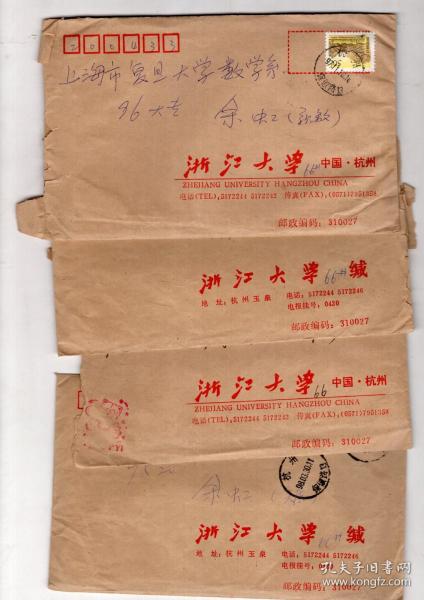 200433
上海市复旦大学数学系
96大专
余虹(新数)
浙江大学 66# 中国·杭州
ZHEJIANG UNIVERSITY HANGZHOU CHINA
电话(TEL),5172244 5172243 传真(FAX),(0571)7951358
邮政编码: 310027
浙江大学 66# 缄
地址: 杭州玉泉 电话: 5172244 5172246
电报挂号: 0420
邮政编码: 310027
浙江大学 66 中国·杭州
ZHEJIANG UNIVERSITY HANGZHOU CHINA
电话(TEL),5172244 5172243 传真(FAX),(0571)7951358
邮政编码: 310027
余虹
浙江大学 缄
地址: 杭州玉泉 电话: 5172244 5172246
电报挂号:
邮政编码: 310027
孔夫子旧书网
kongfz.com